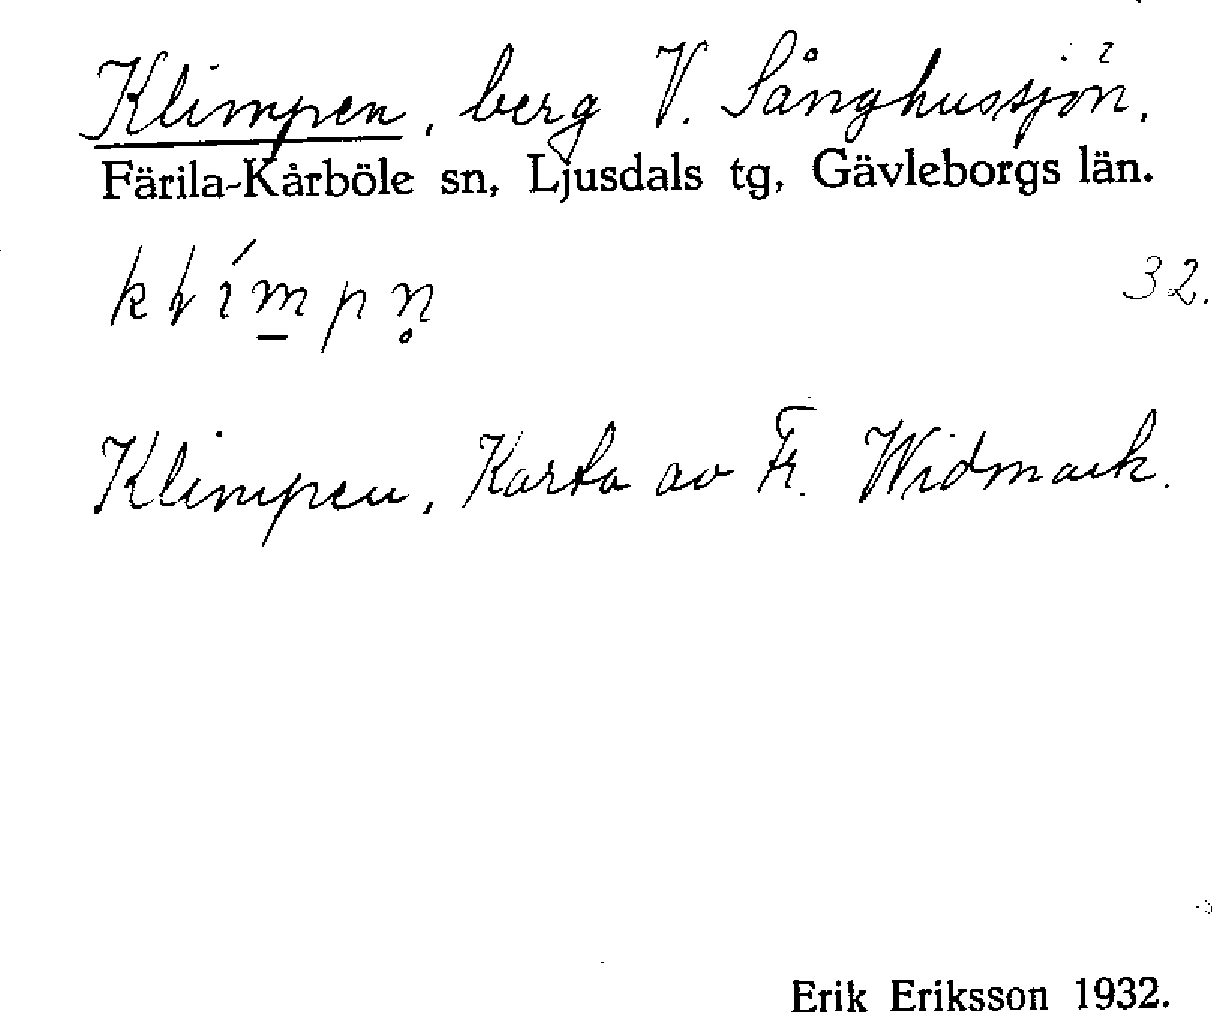 Klimpen, berg V. Sånghussjön.
Färila-Kårböle sn, Ljusdals tg, Gävleborgs län.
32.
Klimpen, Karta av Fr. Widmark.
Erik Eriksson 1932.